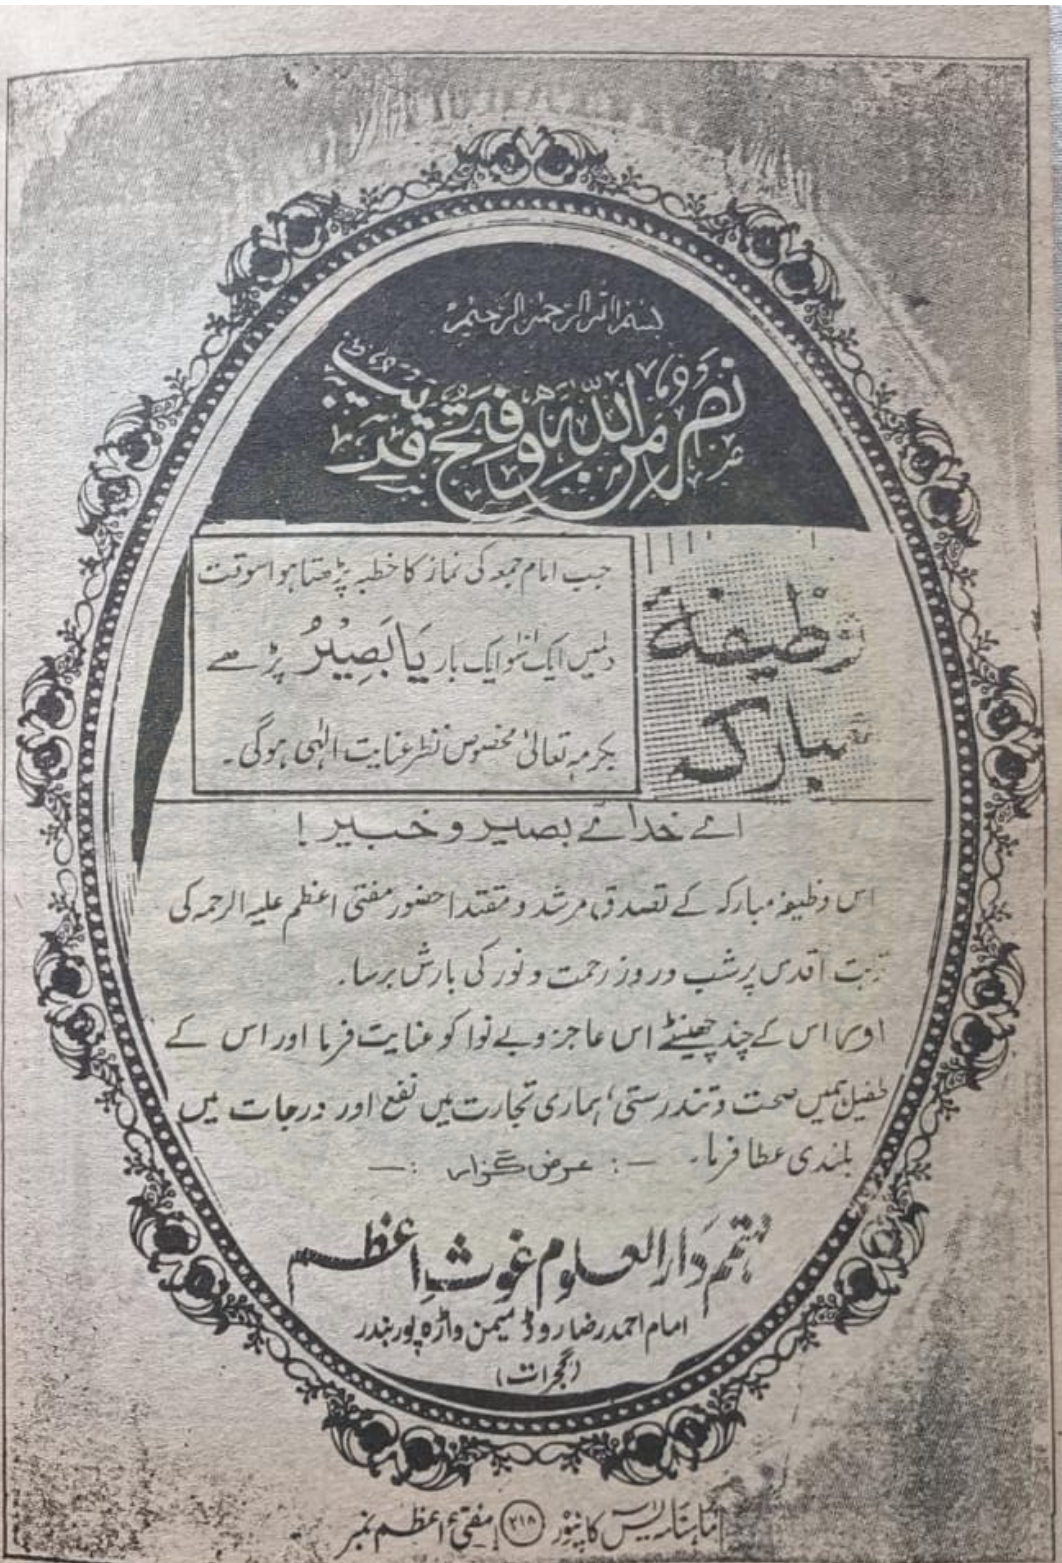 بسم اللہ الرحمٰن الرحیم
نَصْرٌ مِّنَ اللّٰهِ وَفَتْحٌ قَرِيْبٌ
وظیفۂ
مبارکہ
جب امام جمعہ کی نماز کا خطبہ پڑھتا ہو اسوقت
دلمیں ایک سو ایک بار یَا بَصِیْرُ پڑھے
بکرمہ تعالیٰ مخصوص نظر عنایت الٰہی ہوگی۔
اے خدائے بصیر و خبیر!
اس وظیفہ مبارکہ کے تصدق مرشد و مقتدا حضور مفتی اعظم علیہ الرحمہ کی
تربت اقدس پر شب و روز رحمت و نور کی بارش برسا۔
اور اس کے چند چھینٹے اس عاجز و بے نوا کو عنایت فرما اور اس کے
طفیل ہمیں صحت و تندرستی، ہماری تجارت میں نفع اور درجات میں
بلندی عطا فرما۔ —: عرض گزار :—
مہتمم دار العلوم غوثِ اعظم
امام احمد رضا روڈ میمن واڑہ پوربندر
(گجرات)
ماہنامہ کانپور ۲۱۸ مفتیٔ اعظم نمبر